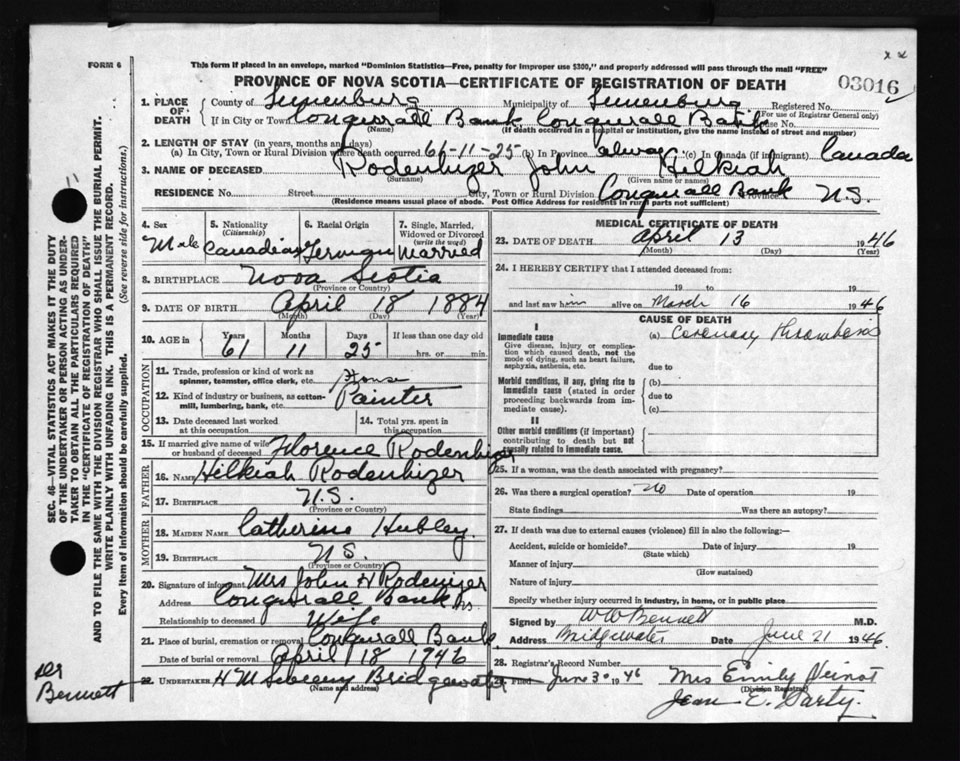 FORM 6
This form if placed in an envelope, marked "Dominion Statistics—Free, penalty for improper use $300," and properly addressed will pass through the mail "FREE"
PROVINCE OF NOVA SCOTIA—CERTIFICATE OF REGISTRATION OF DEATH
03016
1. PLACE OF DEATH
County of Lunenburg Municipality of Lunenburg Registered No.
(For use of Registrar General only)
If in City or Town Conquerall Bank Conquerall Bank
(Name) (If death occurred in a hospital or institution, give the name instead of street and number)
2. LENGTH OF STAY (in years, months and days)
(a) In City, Town or Rural Division where death occurred 61-11-25 (b) In Province always (c) In Canada (if immigrant) Canada
3. NAME OF DECEASED Rodenhizer John Hilkiah
(Surname) (Given name or names)
RESIDENCE No. Street City, Town or Rural Division Conquerall Bank Province N.S.
(Residence means usual place of abode. Post Office Address for residents in rural parts not sufficient)
4. Sex Male
5. Nationality (Citizenship) Canadian
6. Racial Origin German
7. Single, Married, Widowed or Divorced (write the word) Married
8. BIRTHPLACE Nova Scotia
(Province or Country)
9. DATE OF BIRTH April 18 1884
(Month) (Day) (Year)
10. AGE in Years 61 Months 11 Days 25 If less than one day old
hrs. or min.
OCCUPATION
11. Trade, profession or kind of work as spinner, teamster, office clerk, etc. House
12. Kind of industry or business, as cotton-mill, lumbering, bank, etc. Painter
13. Date deceased last worked at this occupation
14. Total yrs. spent in this occupation
15. If married give name of wife or husband of deceased Florence Rodenhizer
FATHER
16. NAME Hilkiah Rodenhizer
17. BIRTHPLACE N.S.
(Province or Country)
MOTHER
18. MAIDEN NAME Catherine Hubley
19. BIRTHPLACE N.S.
(Province or Country)
20. Signature of informant Mrs John H Rodenizer
Address Conquerall Bank NS
Relationship to deceased Wife
21. Place of burial, cremation or removal Conquerall Bank
Date of burial or removal April 18 1946
22. UNDERTAKER H M Sweeny Bridgewater
(Name and address)
Dr Bennett
MEDICAL CERTIFICATE OF DEATH
23. DATE OF DEATH April 13 1946
(Month) (Day) (Year)
24. I HEREBY CERTIFY that I attended deceased from:
19 to 19
and last saw him alive on March 16 1946
CAUSE OF DEATH
I
Immediate cause
Give disease, injury or complication which caused death, not the mode of dying, such as heart failure, asphyxia, asthenia, etc.
(a) Coronary Thrombosis
due to
Morbid conditions, if any, giving rise to immediate cause (stated in order proceeding backwards from immediate cause).
(b)
due to
(c)
II
Other morbid conditions (if important) contributing to death but not causally related to immediate cause.
25. If a woman, was the death associated with pregnancy?
26. Was there a surgical operation? No Date of operation 19
State findings Was there an autopsy?
27. If death was due to external causes (violence) fill in also the following:—
Accident, suicide or homicide? Date of injury 19
(State which)
Manner of injury
(How sustained)
Nature of injury
Specify whether injury occurred in industry, in home, or in public place
Signed by W W Bennett M.D.
Address Bridgewater Date June 21 1946
28. Registrar's Record Number
Filed June 30 1946 Mrs Emily Veinot
(Division Registrar)
Jean E. Sarty
SEC. 46—VITAL STATISTICS ACT MAKES IT THE DUTY
OF THE UNDERTAKER OR PERSON ACTING AS UNDER-
TAKER TO OBTAIN ALL THE PARTICULARS REQUIRED
IN THE "CERTIFICATE OF REGISTRATION OF DEATH"
AND TO FILE THE SAME WITH THE DIVISION REGISTRAR WHO SHALL ISSUE THE BURIAL PERMIT.
WRITE PLAINLY WITH UNFADING INK. THIS IS A PERMANENT RECORD.
Every item of information should be carefully supplied. (See reverse side for instructions.)